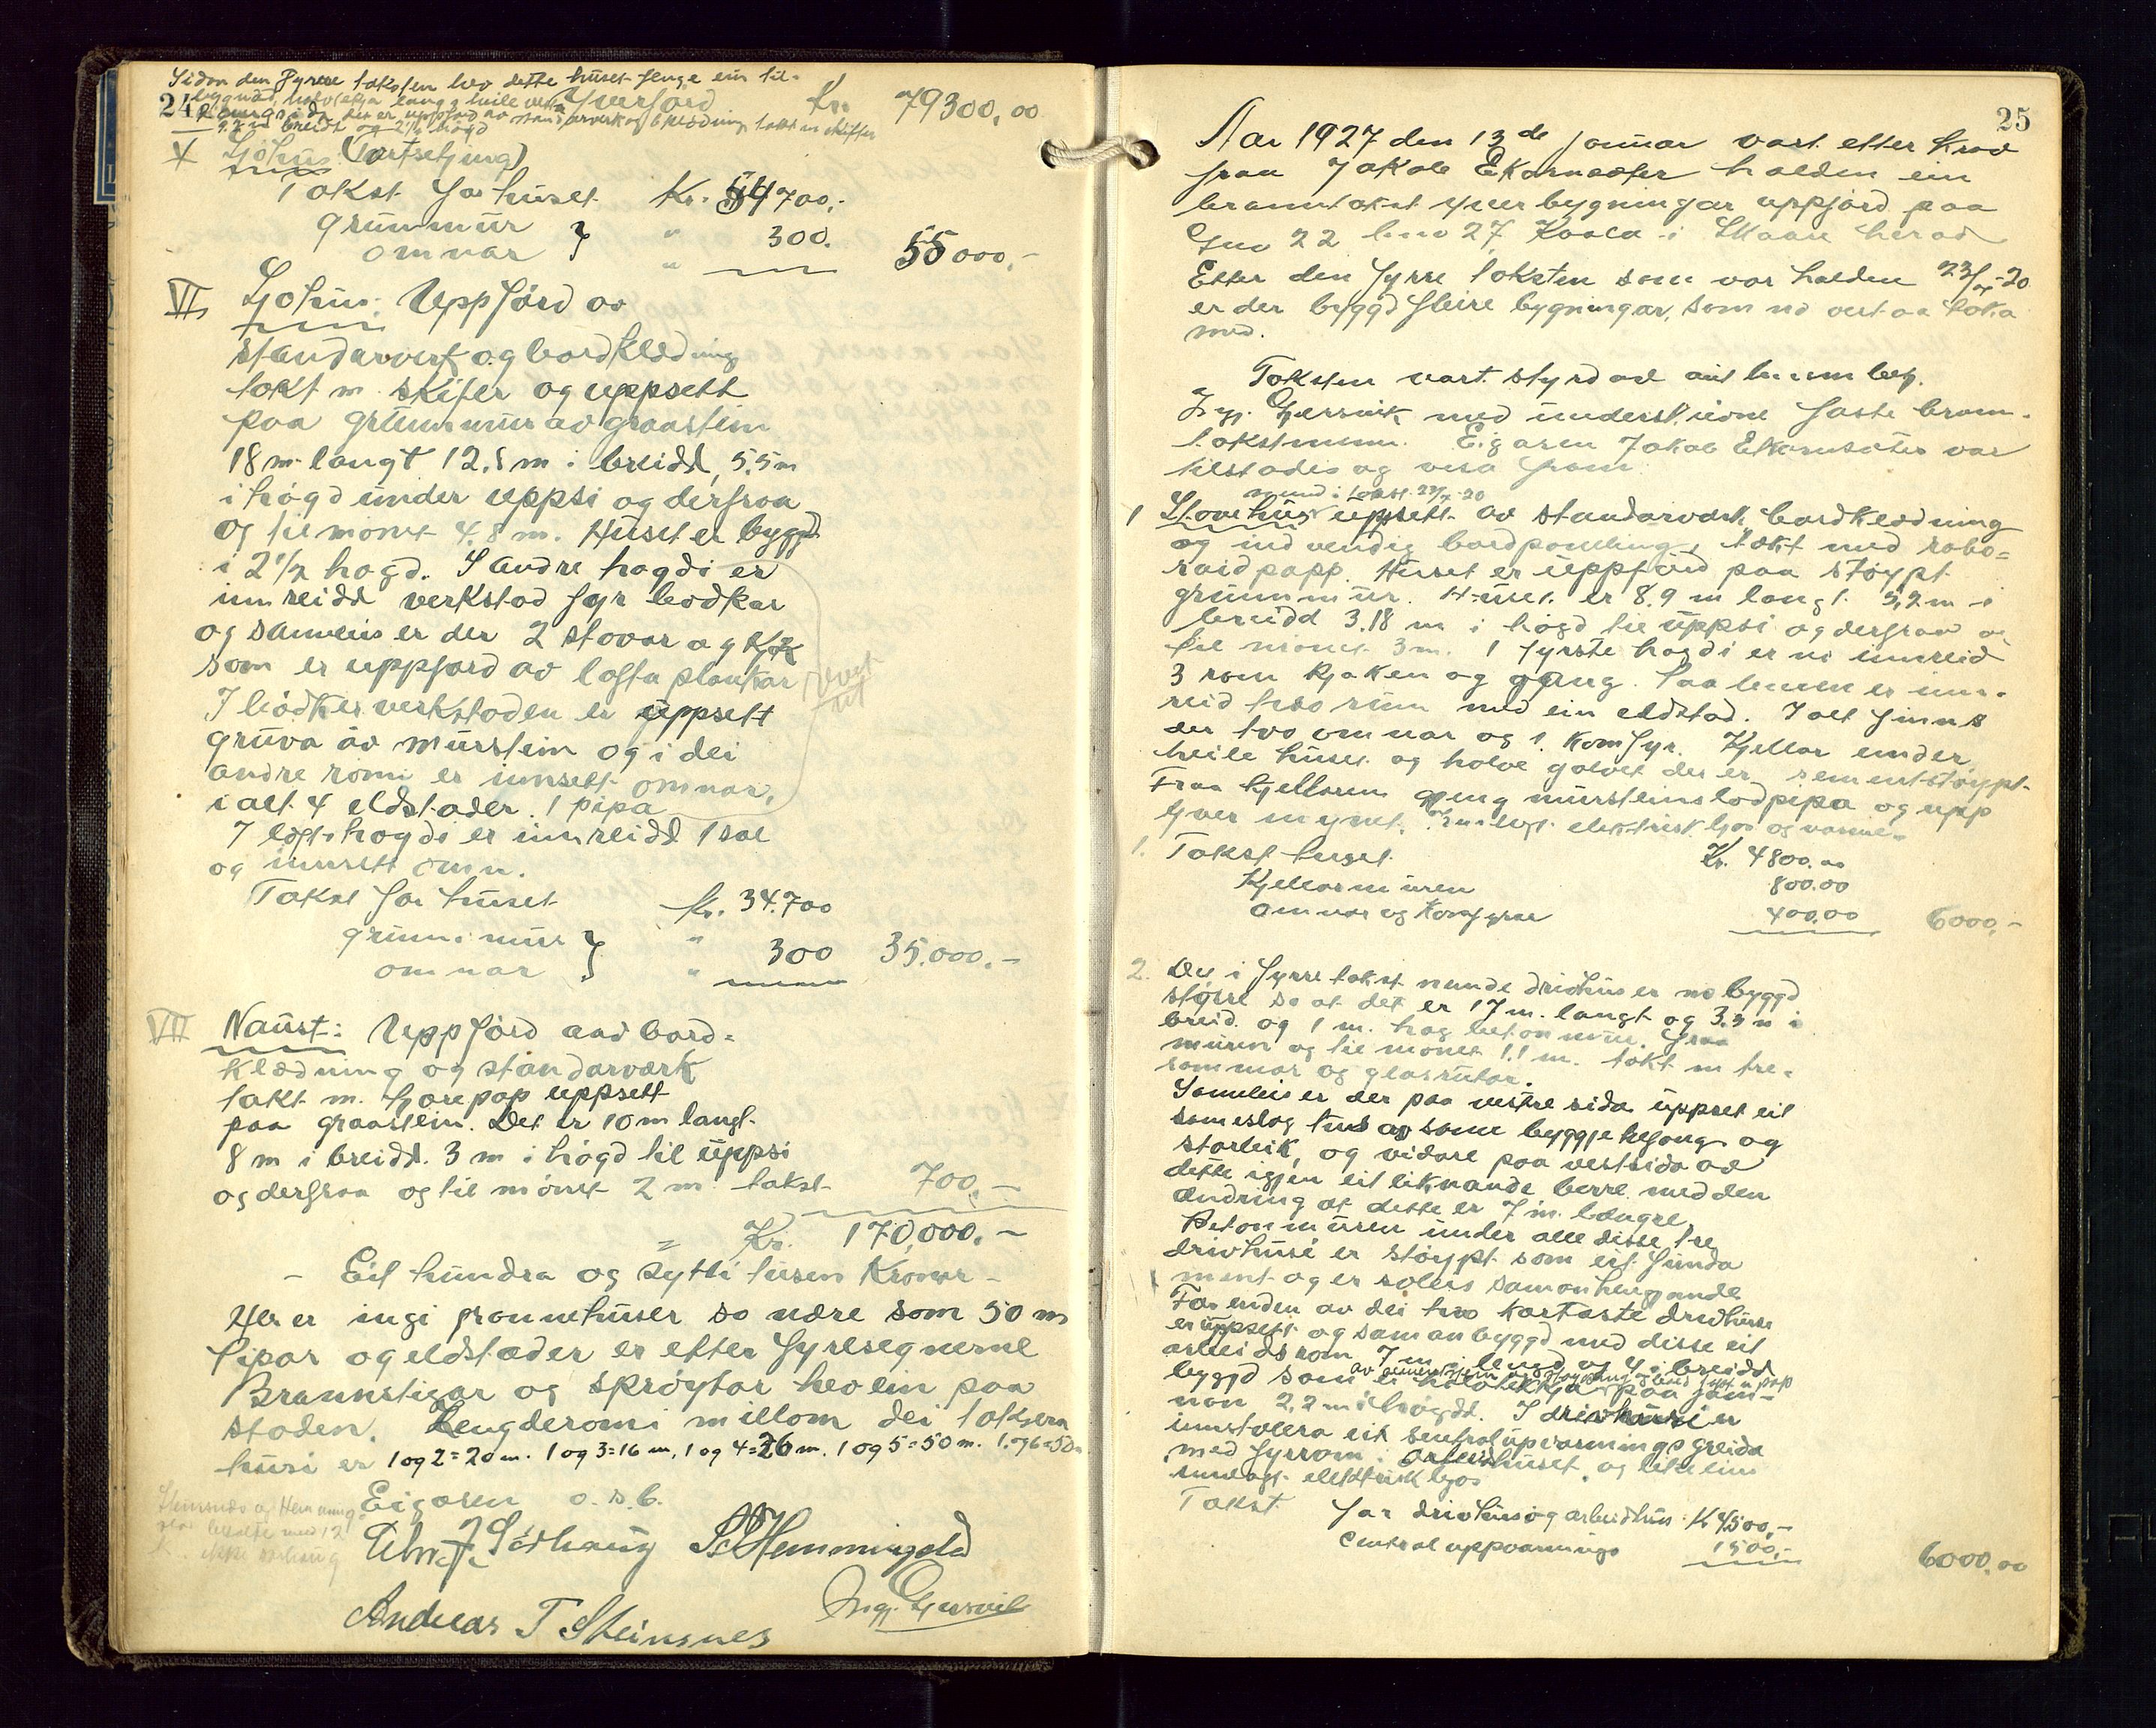 Sidan den fyrre taksten hev dette huset fenge ein til-
24 bygnad, halvtekja langs heile
Yverførd Kr. 79300,00
9.2 m breidt og 2½ høgd
V Sjøhus (fortsetjing)
Takst for huset Kr. 54700,-
grunmur } " 300.
omnar " 55000,-
VI Sjøhus: Uppførd av
standarverk og bordklædning
tekt m. skifer og uppsett
paa grunnmur av graastein
18 m langt 12,5 m i breidd, 5,5 m
i høgd under uppsi og derfraa
og til mønet 4,8 m. Huset er bygd
i 2½ høgd. I andre høgdi er
innreidd verkstad fyr bødkar
og samleis er der 2 stovar og kjk
som er uppførd av lafta plankar
I bødkerverkstaden er uppsett
gruva av murstein og i dei
andre romi er innsett omnar,
i alt 4 eldstader. 1 pipa
I loftshøgdi er innreidd 1 sal
og innsett omn.
Takst for huset kr. 34.700
grunnmur } " 300 35.000.-
omnar "
VII Naust: Uppførd aav bord-
klædning og standarværk
takt m. tjorepap uppsett
paa graastein. Det er 10 m langt.
8 m i breidd. 3 m i høgd til uppsi
og derfraa og til mønet 2 m. takst 700,-
= Kr. 170,000.-
- Eit hundra og sytti tusen Kronor -
Her er ingi grannehuser so nære som 50 m
Pipor og eldstæder er etter fyresegnerne
Brannstigar og sprøytor hev ein paa
staden. Lengderomi millom dei takserte
husi er 1 og 2 = 20 m. 1 og 3 = 16 m, 1 og 4 = 26 m. 1 og 5 = 50 m. 1 og 6 = 50 m
Eigaren o.s.b.
Steinsnes og Hemming-
stad betalte med 12
S Hemmingstad
Andreas T Steinsnes Ingj. Gjersvik
25
Aar 1927 den 13de januar vart etter krav
fraa Jakob Ekornsæter halden ein
branntakst yver bygningar uppførd paa
Gno 22 bno 27 Kvala i Skaare herad
Etter den fyrre taksten som var halden 23/ -20
er der byggd fleire bygningar, som no vert aa taka
med.
Taksten vart styrd av
Ingj. Gjersvik med underskrivne faste brann-
takstmenn. Eigaren Jakob Ekornsæter var
tilstades og vesa fram:
nemnd i takst 23/ -20
1 Stovehus uppsett av standarverk, bordklædning
og indvendig bordpaneling, tekt med rabe-
raidpapp. Huset er uppførd paa støypt
grunnmur. Huset er 8.9 m langt 5,2 m i
breidd 3.18 m i høgd til uppsi og derfraa og
til mønet 3 m. I fyrste høgdi er ni innreid
3 rom kjøken og gang. Paa lemen er inn-
reid tvo rum med ein eldstad. I alt finns
der tvo omnar og 1. Komfyr. Kjellar under
heile huset og halve golvet der er sementstøypt.
Fraa kjellaren gjeng mursteinslodpipa og upp
yver mynet. Innlagt elektrisk ljos og varme.
1. Takst huset Kr. 4800.00
Kjellarmuren 800.00
omnar og komfyrar 400.00 6000,-
2. Det i fyrre takst nemnde drivhus er no byggd
større so at det er 17 m. langt og 3.3 m i
breid. og 1 m. høg betonmur. Fraa
muren og til mønet 1.1 m. tekt m tre-
rammar og glasrutar.
Samleis er der paa vestre sida uppset eit
sameslag hus av same byggjekefong og
storleik, og vidare paa vestsida av
dette igjen eit liknande berre med den
ændring at dette er 7 m. længre.
Betonmuren under alle disse tre
drivhusi er støypt som eit funda
ment og er soleis samanhengande
For enden av dei tvo kortaste drivhusi
er uppsett og samanbyggd med disse eit
arbeidsrom 7 m i lengd og 4 i breidd
byggd som ei halvtekkja paa
non 2,2 m i høgdd. I drivhusi er
innstallera eit sentraluppvarmingsgreida
med fyrrom i arbeidshuset, og likeleis
innlagt elektrisk ljos
Takst for drivhus og arbeidhus Kr 4500,-
Central uppvarmings 1500,- 6000.00